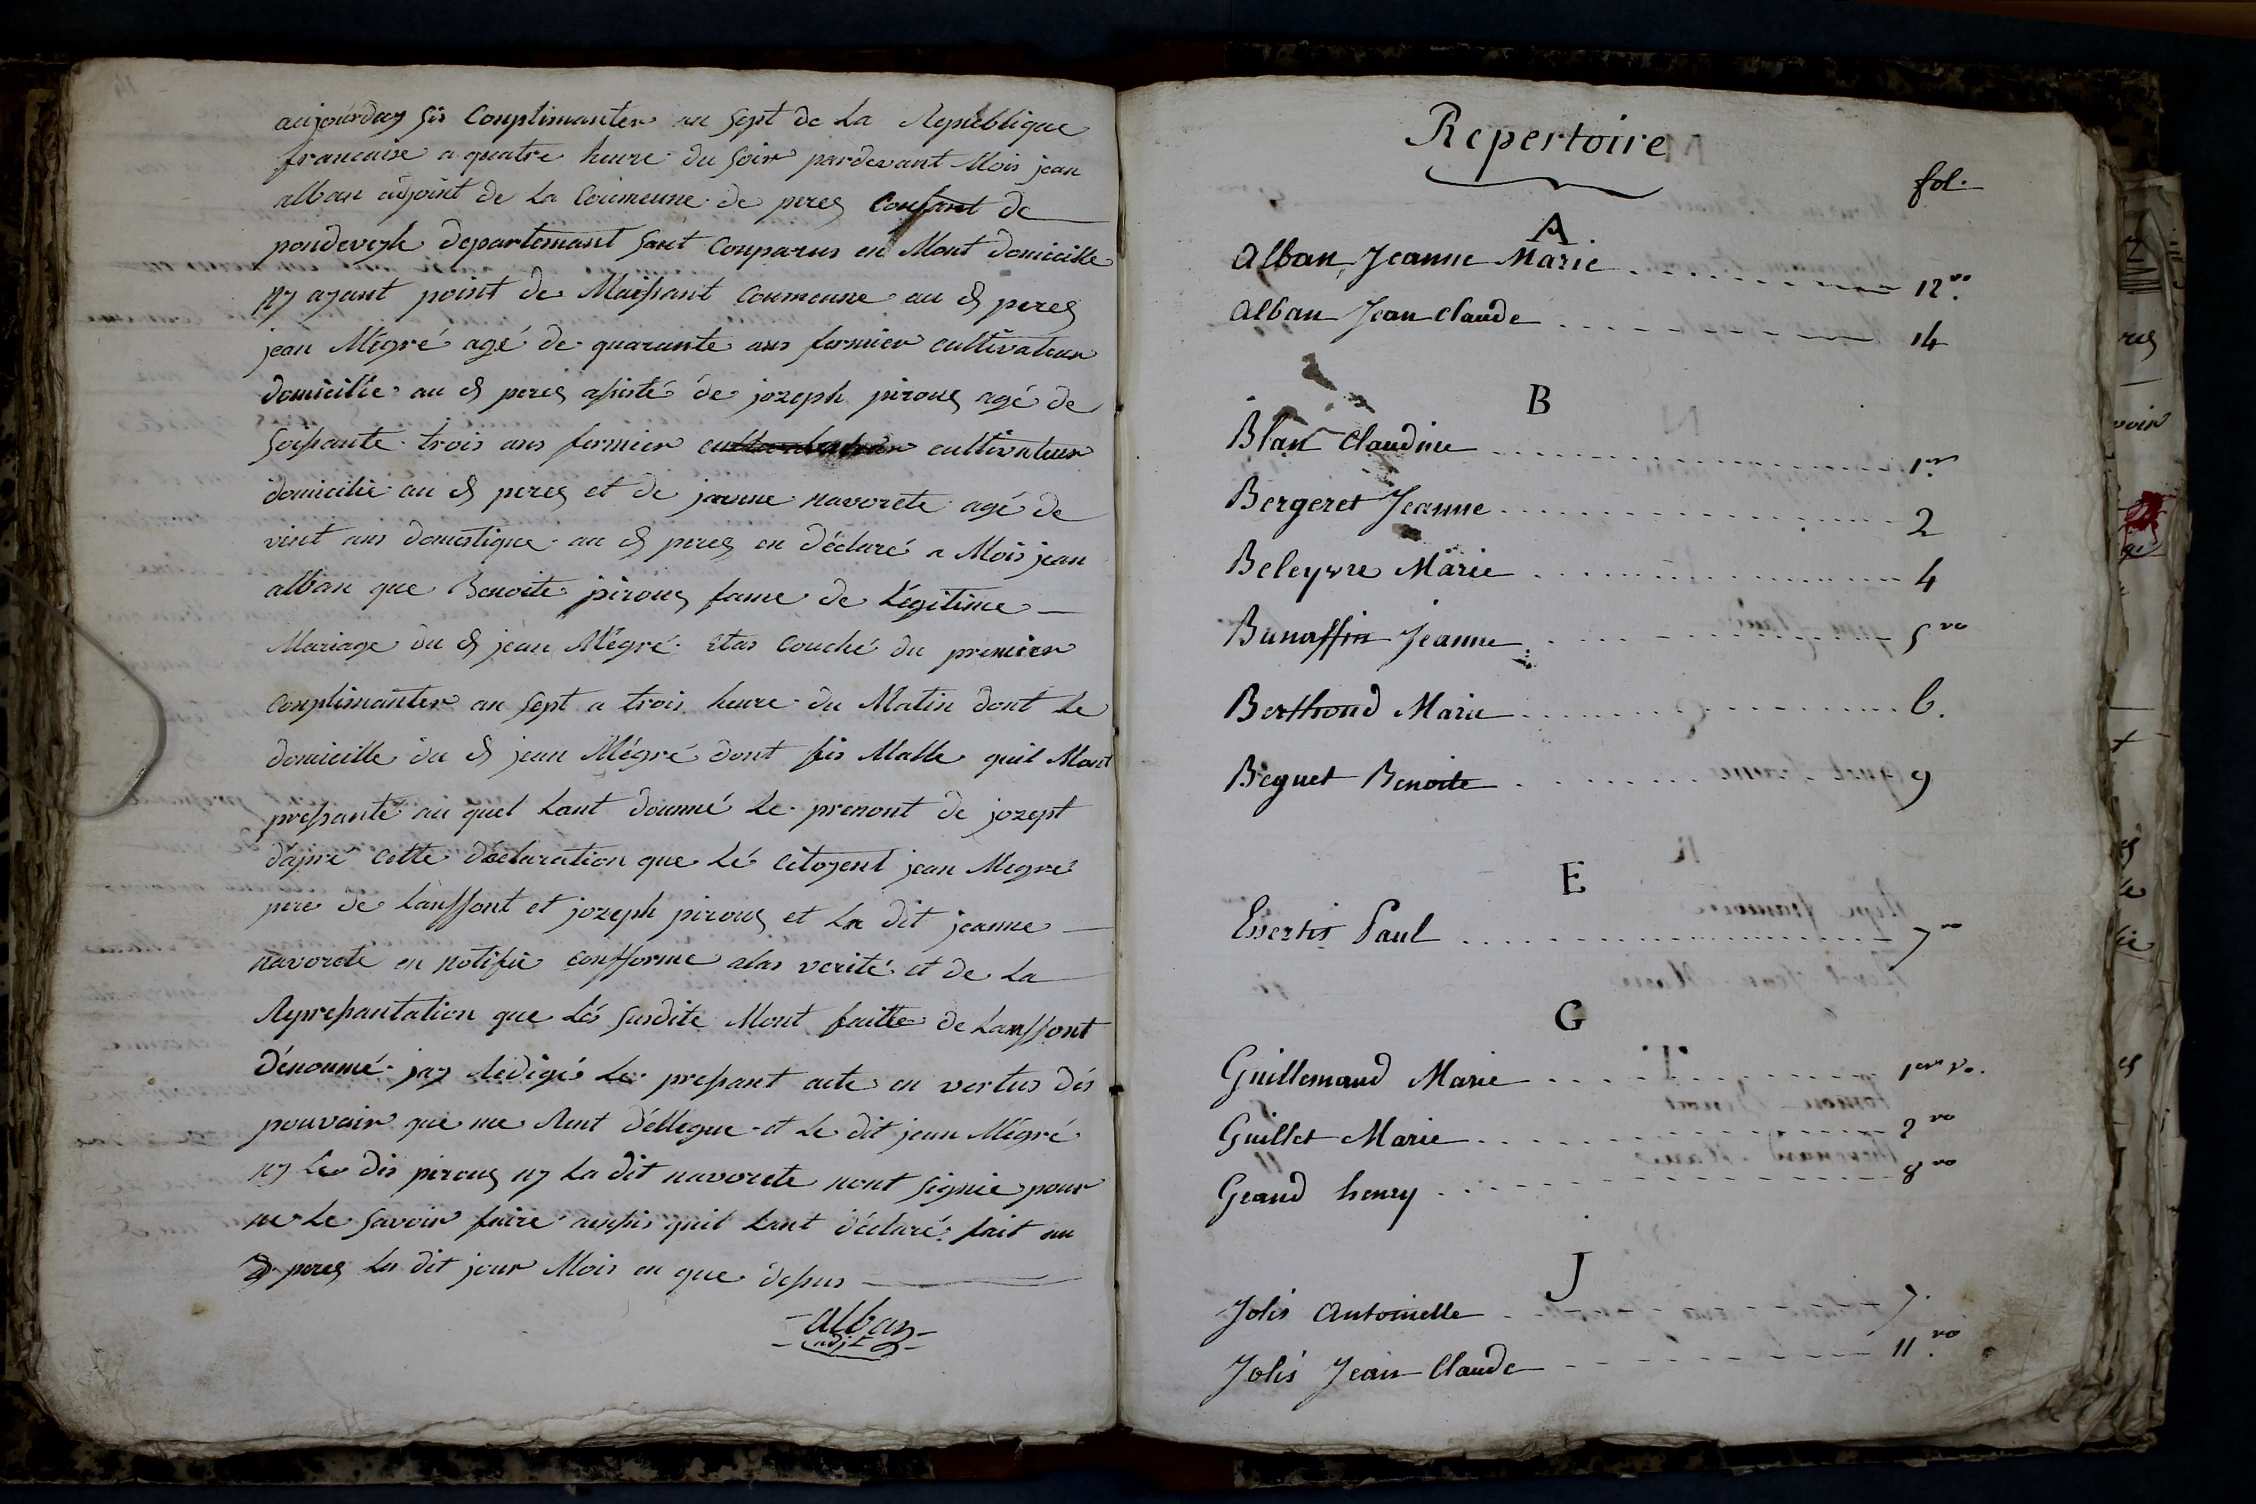 aujourduy sis Conplimanter an sept de La Republique
francaise a quatre heure du soir pardevant Mois jean
alban adjoint de la Coumeune de peres Conssant de
pondeveyle departemant sant Conparus en Mont domicille
ny ayant point de Maissant Coumeune au d peres
jean Mégré agé de quarante ans fermier cultivateur
domicilie au d peres assisté de jozeph pirous agé de
soissante trois ans fermier cultivateur
domicilie au d peres et de jeanne navorete agé de
vint ans domestique au d peres en déclaré a Mois jean
alban que Benoite pirous fame de Légitime
Mariage du d jean Mégré Etas Couché du premier
Conplimanter an sept a trois heure du Matin dont Le
domicille du d jean Mégré dont fis Malle quil Mont
pressanté au quel Lant donné Le prenont de jozept
dapré cette déclaration que Lé Citoyent jean Megré
pere de Lanffont et jozeph pirous et La dit jeanne
navorete en notifie Confforme alas verité et de La
Repressantation que Lés susdite Mont faitte de Lanffont
dénoumé jay Redigé Le pressant acte en vertus dés
pouvoir que me sont déllegue et Le dit jean Mégré
ny Le dis pirous ny La dit navorete nont signie pour
ne Le savoir faire aussis quil Lant déclaré fait au
d peres La dit jour Mois en que dessus
alban
adjt
Repertoire
fol.
A
Alban Jeanne Marie 12 vo.
Alban Jean Claude 14
B
Blan Claudine 1er
Bergeret Jeanne 2
Beleyvre Marie 4
Bunaffin Jeanne 5 vo
Berthoud Marie 6.
Beguet Benoite 9
E
Essertis Paul 7 vo
G
Guillemaud Marie 1er vo.
Guillet Marie 2 vo
Geand henry 8 vo
J
Jolis Antoinette 7.
Jolis Jean Claude 11 vo